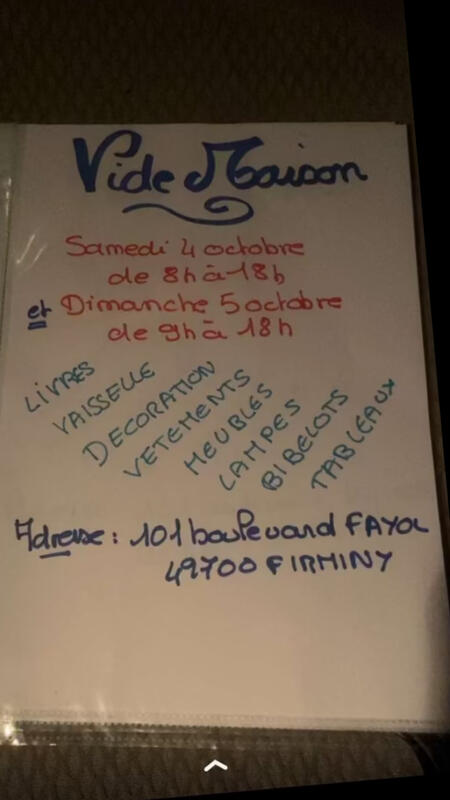 Vide Maison
Samedi 4 octobre
de 8h à 18h
et Dimanche 5 octobre
de 9h à 18h
LIVRES
VAISSELLE
DECORATION
VETEMENTS
MEUBLES
LAMPES
BIBELOTS
TABLEAUX
Adresse : 101 boulevard FAYOL
42700 FIRMINY